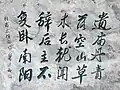 遺廟丹青
落空山草
木長猶聞
辞后主不
復卧南陽